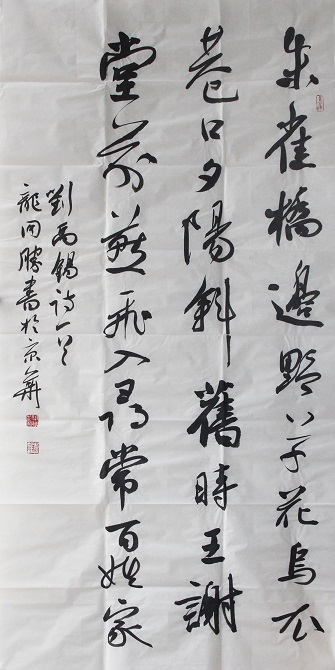 朱雀橋邊野草花烏衣
巷口夕陽斜舊時王謝
堂前燕飛入尋常百姓家
劉禹錫詩一首
龍開勝書於京華